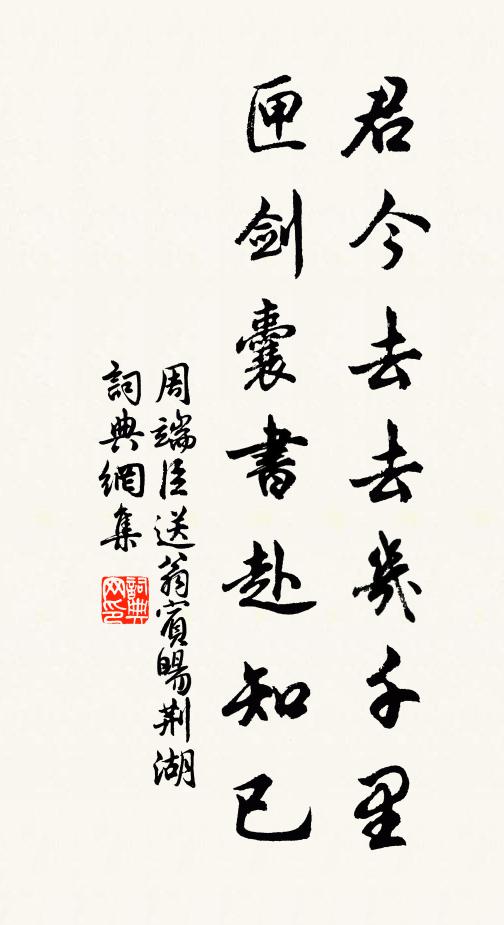 君今去去幾千里
匣劍囊書赴知己
周端臣送翁賓暘荆湖
詞典網集
詞典網印